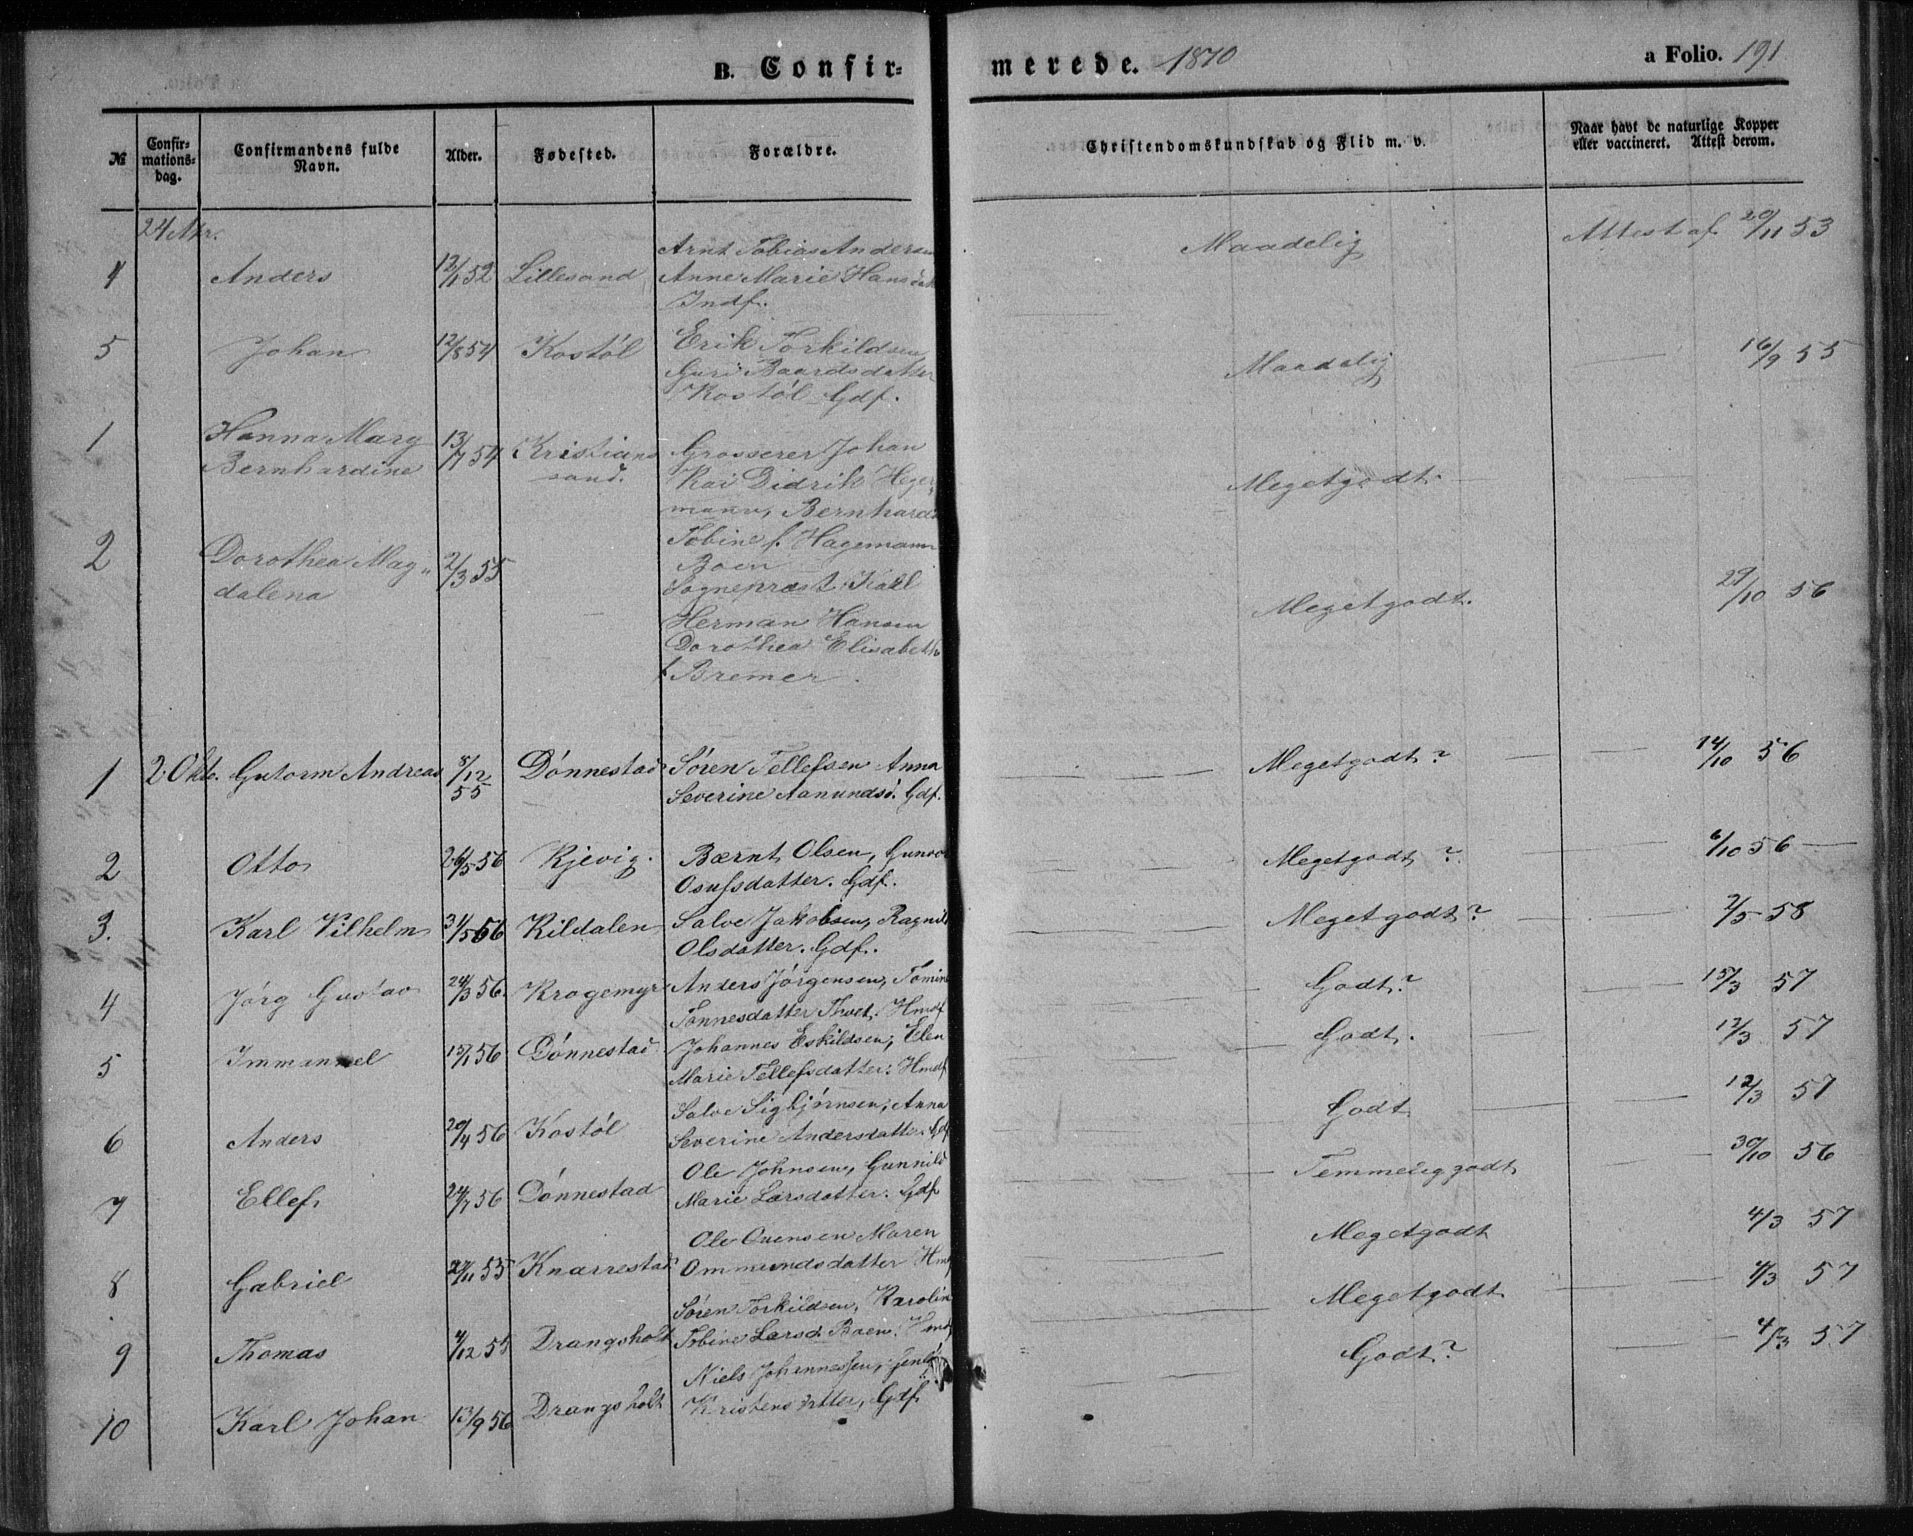 B. Confir=
merede. 1870
a Folio. 191
№
Confir-
mations-
dag.
Confirmandens fulde
Navn.
Alder.
Fødested.
Forældre.
Christendomskundskab og Flid m. v.
Naar havt de naturlige Kopper
eller vaccineret. Attest derom.
24
4 Anders 12/1 52 Lillesand
Arnt Tobias Andersen
Anne Marie Hansd
Indf.
Maadelig
Attest af 20/11 53
5 Johan 12/8 54 Kostöl
Erik Torkildsen
Guri Baardsdatter
Kostöl Gdf.
Maadelig
16/9 55
1 Hanna Marg
Bernhardine
13/7 54
Kristians
sand.
Grosserer Johan
Kai Didrik Heger
mann, Bernhard
Tobine f. Hagemann
Boen
Megetgodt.
2 Dorothea Mag„
dalena
2/3 55
Sognepræst Karl
Herman Hansen
Dorothea Elisabeth
f Bremer.
Megetgodt.
29/10 56
1 2 Okto. Gutorm Andreas 8/12
55
Dönnestad
Sören Tellefsen Anna
Severine Aanunds. Gdf.
Megetgodt?
14/10 56
2 Otto 26/5 56 Kjevig.
Bærnt Olsen, Gunvor
Osufsdatter. Gdf.
Megetgodt?
6/10 56
3. Karl Vilhelm 31/5 56 Kildalen
Salve Jakobsen, Ragnild
Olsdatter. Gdf.
Megetgodt?
2/5 58
4 Jörg Gustav 24/3 56. Kragemyr
Anders Jörgensen, Tomine
Tonnesdatter Thvet. Hmdf
Godt?
15/3 57
5 Immanuel 15/1 56 Dönnestad
Johannes Eskildsen, Elen
Marie Tellefsdatter. Hmdf
Godt.
12/3 57
6 Anders 20/4 56 Kostöl
Salve Sigbjörnsen, Anna
Severine Andersdatter. Gdf
Godt
12/3 57
7 Ellef 24/1 56 Dönnestad
Ole Johnsen, Gunnild
Marie Larsdatter. Gdf
Temmelig godt
30/10 56
8 Gabriel 27/11 55 Knarrestad
Ole Ovensen Maren
Ommundsdatter Hmdf
Megetgodt
4/3 57
9 Thomas 4/12 55 Drangsholt
Sören Torkildsen, Karolin
Tobine Larsd. Boen. Hmdf
Megetgodt
4/3 57
10 Karl Johan 13/9 56 Drangsholt
Niels Johannessen,
Kristensdatter, Gdf.
Godt?
4/3 57